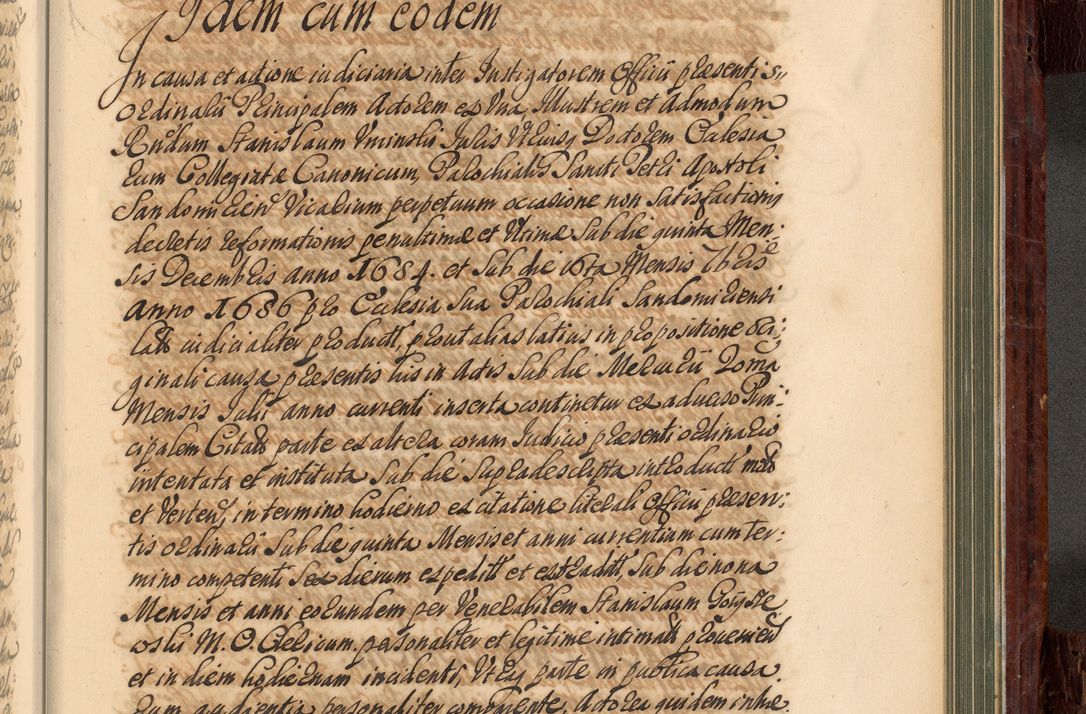 Idem cum eodem
In causa et actione iudiciaria inter Instigatorem Officii præsentis
ordinarii Principalem Actorem ex una Illustrem et Admodum
Rndum Stanislaum Uminski Juris Utriusq Doctorem Eccalesia
rum Collegiatæ Canonicum, Parochialis Sancti Petri Apostoli
Sandomirien Vicarium perpetuum occasione non Satisfactionis
decretis reformationis penultimæ et Ultimæ Sub die quinta Men:
sis Decembris anno 1684. et Sub die 16ta Mensis 7bris
anno 1686 pro Ecclesia Sua Parochiali Sandomiriensi
lat iudicialiter product, prout alias latius in propositione ori:
ginali causæ præsentis his in Actis Sub die Mercurii 2oma
Mensis Julii anno currenti inserta continetur ex adverso Prin:
cipalem Citat parte ex altera coram Judicio præsenti ordinario
intentata et instituta Sub die Supradescripta introducti mot
et Verten, in termino hodierno ex citatione literali Officii præsen:
tis ordinarii Sub die quinta Mensis et anni currentium cum ter:
mino competenti Sex dierum expedit et extradit, Sub die nona
Mensis et anni eorundem per Venerabilem Stanislaum
oski M. C. Clericum personaliter et legitime intimat provenien
et in diem hodiernam incidenti, Utraq parte in publica causa
rum audientia personaliter comparente, Actorea quidem inhæ